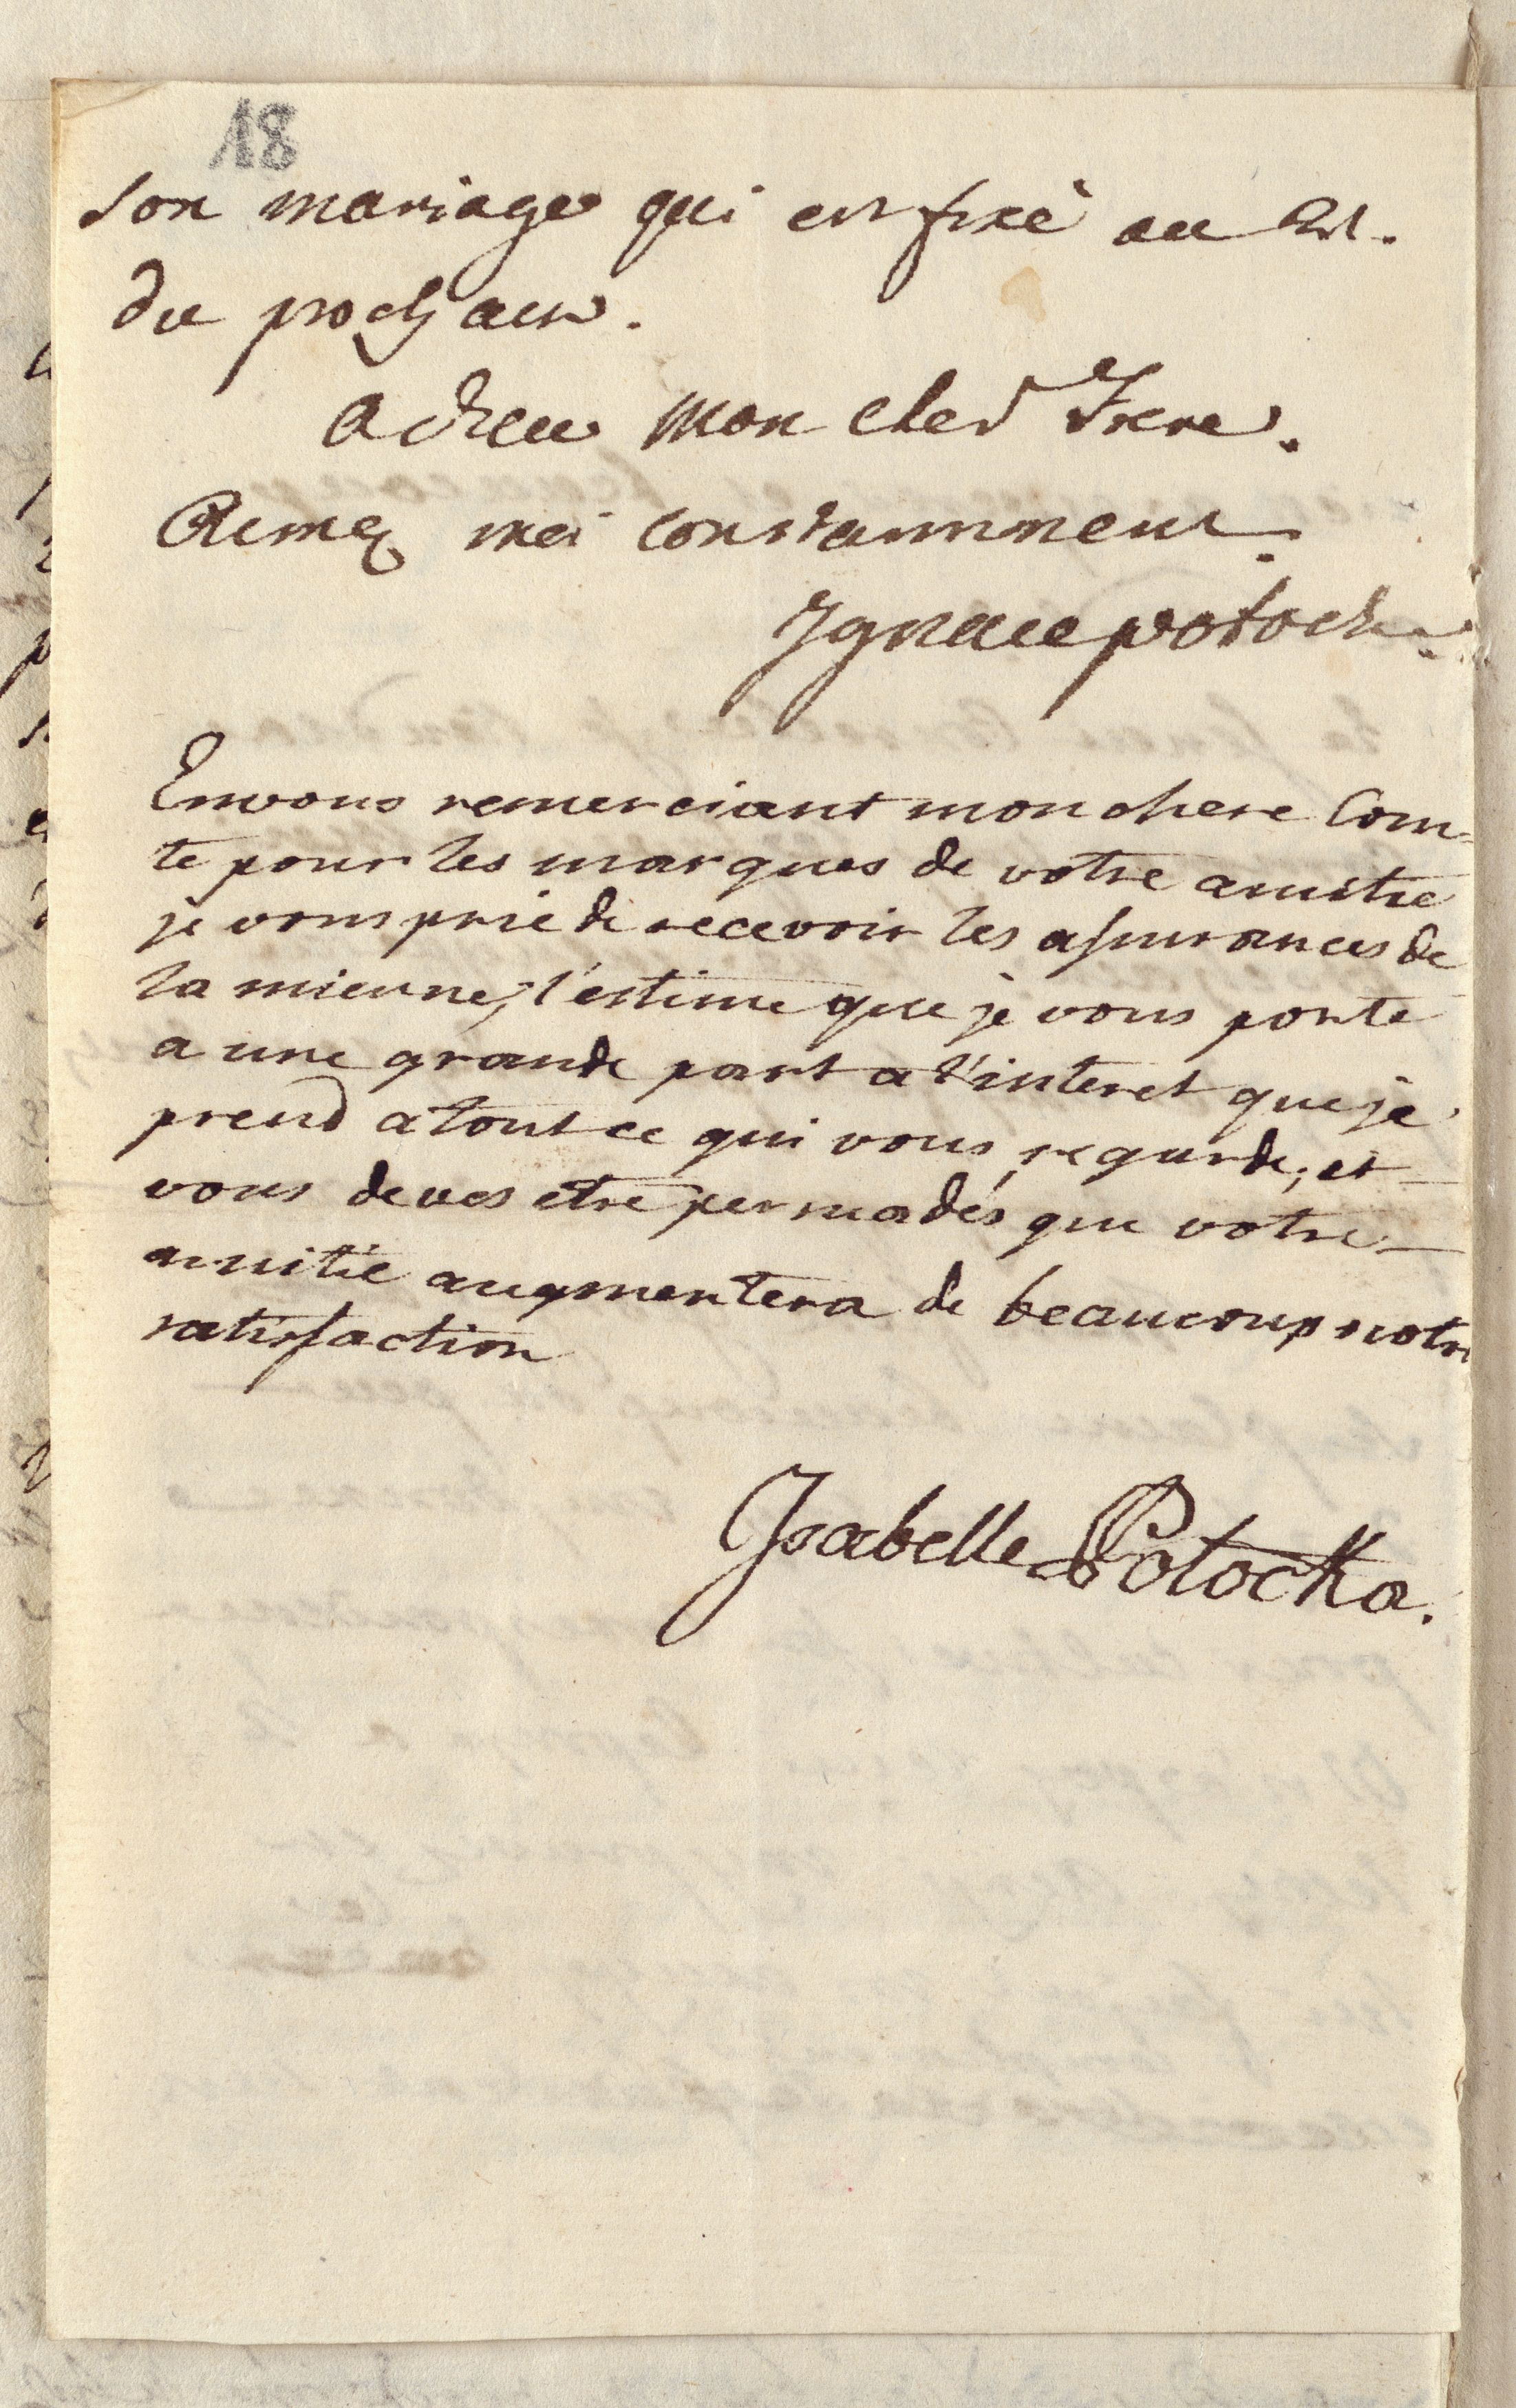 18
son mariage qui est fixé au 21.
du prochain.
Adieu mon cher Frere.
Aimez moi constamment.
Ignace potocki
En vous remerciant mon chere Com-
te pour les marques de votre amitie
je vous prie de recevoir les assurances de
la mienne, l'estime que je vous porte
a une grande part a l'interet que je
prend a tout ce qui vous regarde, et
vous deves etre persuadés que votre
amitié augmentera de beaucoup notre
satisfaction
Isabelle Potocka.